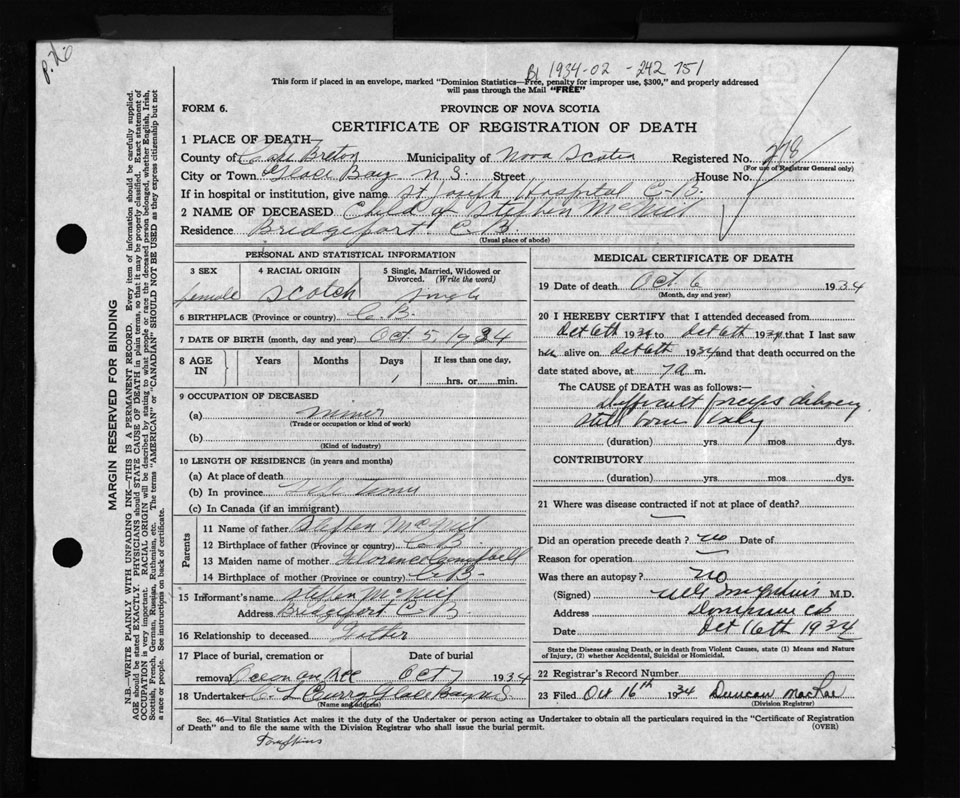 P. 26
B 1934-02-242751
This form if placed in an envelope, marked "Dominion Statistics—Free, penalty for improper use, $300," and properly addressed
will pass through the Mail "FREE"
FORM 6. PROVINCE OF NOVA SCOTIA
CERTIFICATE OF REGISTRATION OF DEATH
1 PLACE OF DEATH—
County of Cape Breton Municipality of Nova Scotia Registered No. 278
(For use of Registrar General only)
City or Town Glace Bay N.S. Street House No.
If in hospital or institution, give name St Joseph Hospital C-B.
2 NAME OF DECEASED Child of Stephen McNeil
Residence Bridgeport C.B.
(Usual place of abode)
PERSONAL AND STATISTICAL INFORMATION
3 SEX 4 RACIAL ORIGIN 5 Single, Married, Widowed or Divorced. (Write the word)
female Scotch Single
6 BIRTHPLACE (Province or country) C.B.
7 DATE OF BIRTH (month, day and year) Oct 5, 1934
8 AGE IN Years Months Days If less than one day,
1 hrs. or min.
9 OCCUPATION OF DECEASED
(a) miner
(Trade or occupation or kind of work)
(b)
(Kind of industry)
10 LENGTH OF RESIDENCE (in years and months)
(a) At place of death
(b) In province Life Time
(c) In Canada (if an immigrant)
Parents
11 Name of father Stephen McNeil
12 Birthplace of father (Province or country) C.B.
13 Maiden name of mother Florence
14 Birthplace of mother (Province or country) C-B-
15 Informant's name Stephen McNeil
Address Bridgeport C.B.
16 Relationship to deceased Father
17 Place of burial, cremation or removal Date of burial
Oct 7 1934
18 Undertaker Curry Glace Bay N.S
(Name and address)
MEDICAL CERTIFICATE OF DEATH
19 Date of death Oct. 6 1934
(Month, day and year)
20 I HEREBY CERTIFY that I attended deceased from
Oct 6th 1934 to Oct 6th 1934 that I last saw
her alive on Oct 6th 1934 and that death occurred on the
date stated above, at 7 a m.
The CAUSE OF DEATH was as follows:—
Difficult forceps delivery
Still born baby
(duration) yrs mos dys.
CONTRIBUTORY
(duration) yrs. mos. dys.
21 Where was disease contracted if not at place of death?
Did an operation precede death? no Date of
Reason for operation
Was there an autopsy? no
(Signed) M.D.
Address Dominion CB
Date Oct 16th 1934
State the Disease causing Death, or in death from Violent Causes, state (1) Means and Nature
of Injury, (2) whether Accidental, Suicidal or Homicidal.
22 Registrar's Record Number
23 Filed Oct 16th 1934 Duncan MacRae
(Division Registrar)
Sec. 46—Vital Statistics Act makes it the duty of the Undertaker or person acting as Undertaker to obtain all the particulars required in the "Certificate of Registration
of Death" and to file the same with the Division Registrar who shall issue the burial permit. (OVER)
Tompkins
MARGIN RESERVED FOR BINDING
N.B.—WRITE PLAINLY WITH UNFADING INK—THIS IS A PERMANENT RECORD. Every item of information should be carefully supplied.
AGE should be stated EXACTLY. PHYSICIANS should STATE CAUSE OF DEATH in plain terms, so that it may be properly classified. Exact statement of
OCCUPATION is very important. RACIAL ORIGIN will be described by stating to what people or race the deceased person belonged, whether English, Irish,
Scottish, French, German, Russian, Ruthenian, etc. The terms "AMERICAN" or "CANADIAN" SHOULD NOT BE USED as they express citizenship but not
a race or people. See instructions on back of certificate.